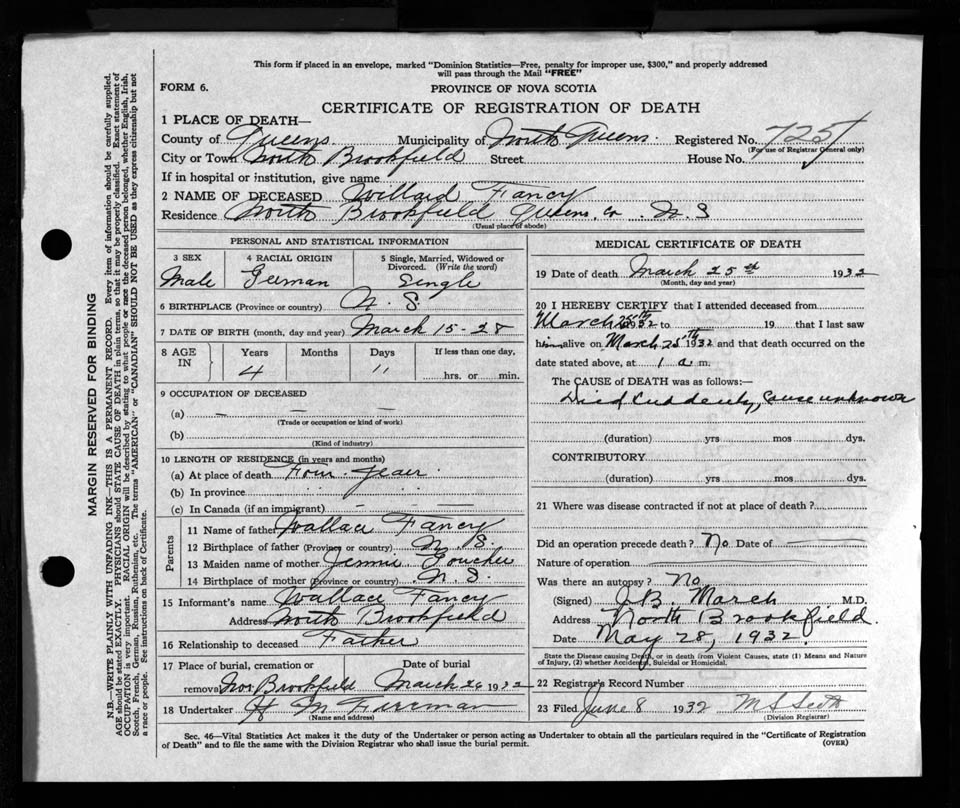 This form if placed in an envelope, marked "Dominion Statistics—Free, penalty for improper use, $300," and properly addressed
will pass through the Mail "FREE"
FORM 6.
PROVINCE OF NOVA SCOTIA
CERTIFICATE OF REGISTRATION OF DEATH
1 PLACE OF DEATH—
County of Queens Municipality of North Queens Registered No. 725
(For use of Registrar General only)
City or Town North Brookfield Street House No.
If in hospital or institution, give name
2 NAME OF DECEASED Willard Fancy
Residence North Brookfield Queens Co. N. S
(Usual place of abode)
PERSONAL AND STATISTICAL INFORMATION
3 SEX 4 RACIAL ORIGIN 5 Single, Married, Widowed or
Divorced. (Write the word)
Male German Single
6 BIRTHPLACE (Province or country) N. S.
7 DATE OF BIRTH (month, day and year) March 15-28
8 AGE IN Years Months Days If less than one day,
4 11 hrs. or min.
9 OCCUPATION OF DECEASED
(a) — — —
(Trade or occupation or kind of work)
(b)
(Kind of industry)
10 LENGTH OF RESIDENCE (in years and months)
(a) At place of death Four Year
(b) In province " "
(c) In Canada (if an immigrant) — —
Parents
11 Name of father Wallace Fancy
12 Birthplace of father (Province or country) N. S.
13 Maiden name of mother Jennie
14 Birthplace of mother (Province or country) N. S.
15 Informant's name Wallace Fancy
Address North Brookfield
16 Relationship to deceased Father
17 Place of burial, cremation or Date of burial
removal Nor Brookfield March 26 1932
18 Undertaker H M
(Name and address)
MEDICAL CERTIFICATE OF DEATH
19 Date of death March 25th 1932
(Month, day and year)
20 I HEREBY CERTIFY that I attended deceased from
March 25th 1932 to 19 that I last saw
him alive on March 25th 1932 and that death occurred on the
date stated above, at 1 a m.
The CAUSE OF DEATH was as follows:—
Died Suddenly, Cause unknown
(duration) yrs mos dys.
CONTRIBUTORY
(duration) yrs mos dys.
21 Where was disease contracted if not at place of death?
Did an operation precede death? No Date of
Nature of operation
Was there an autopsy? No
(Signed) J.B. March M.D.
Address North Brookfield.
Date May 28, 1932.
State the Disease causing Death, or in death from Violent Causes, state (1) Means and Nature
of Injury, (2) whether Accidental, Suicidal or Homicidal.
22 Registrar's Record Number
23 Filed June 8 1932 M S
(Division Registrar)
Sec. 46—Vital Statistics Act makes it the duty of the Undertaker or person acting as Undertaker to obtain all the particulars required in the "Certificate of Registration
of Death" and to file the same with the Division Registrar who shall issue the burial permit. (OVER)
MARGIN RESERVED FOR BINDING
N.B.—WRITE PLAINLY WITH UNFADING INK—THIS IS A PERMANENT RECORD. Every item of information should be carefully supplied.
AGE should be stated EXACTLY. PHYSICIANS should STATE CAUSE OF DEATH in plain terms, so that it may be properly classified. Exact statement of
OCCUPATION is very important. RACIAL ORIGIN will be described by stating to what people or race the deceased person belonged, whether English, Irish,
Scotch, French, German, Russian, Ruthenian, etc. The terms "AMERICAN" or "CANADIAN" SHOULD NOT BE USED as they express citizenship but not
a race or people. See instructions on back of Certificate.